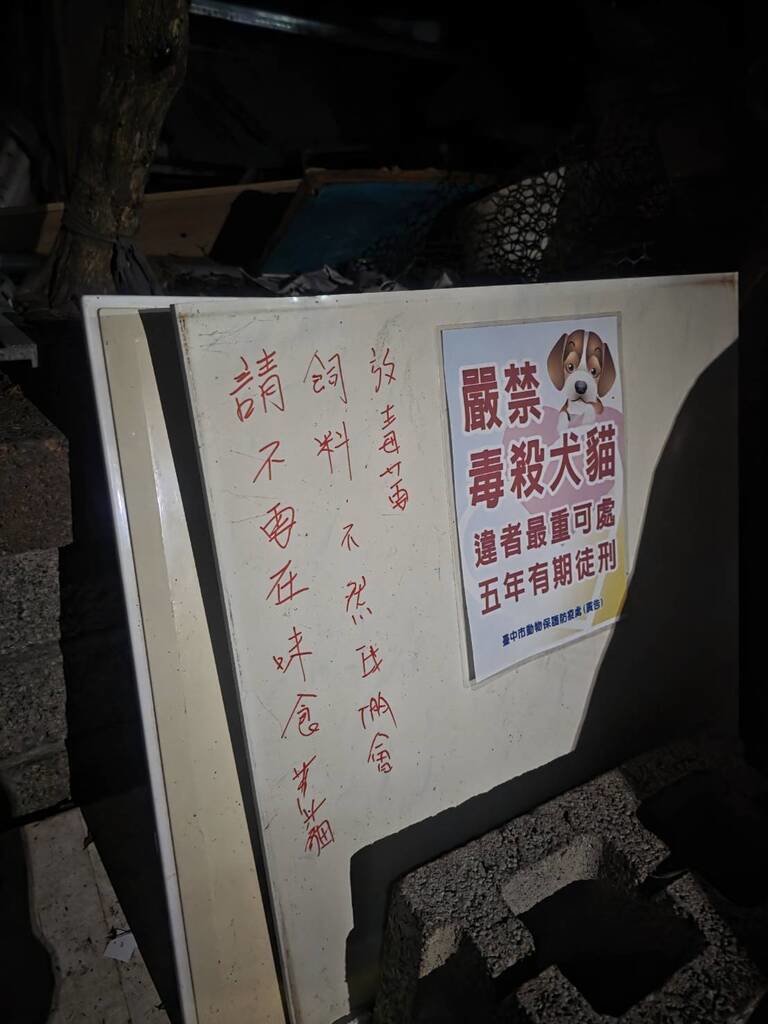 請不要在味食野貓
飼料.不然我們會
放毒藥
嚴禁
毒殺犬貓
違者最重可處
五年有期徒刑
臺中市動物保護防疫處(廣告)